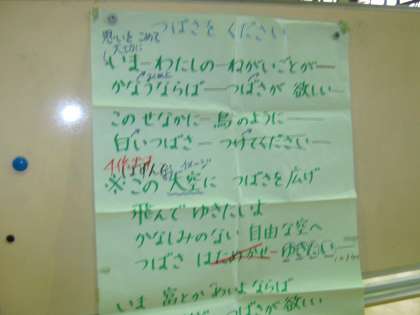 つばさをください
思いをこめて
大切に
いまーわたしのーねがいごとがー
かなうならばーーつばさが 欲しいー
このせなかにー鳥のようにーー
白いつばさーーつけてくださいーー
※この 大空に つばさを広げ
イメージ
飛んで ゆきたいよ
かなしみのない 自由な空へ
つばさ はためかせーゆきたいーー
いま 富とか めいよならば
つばさが 欲しい